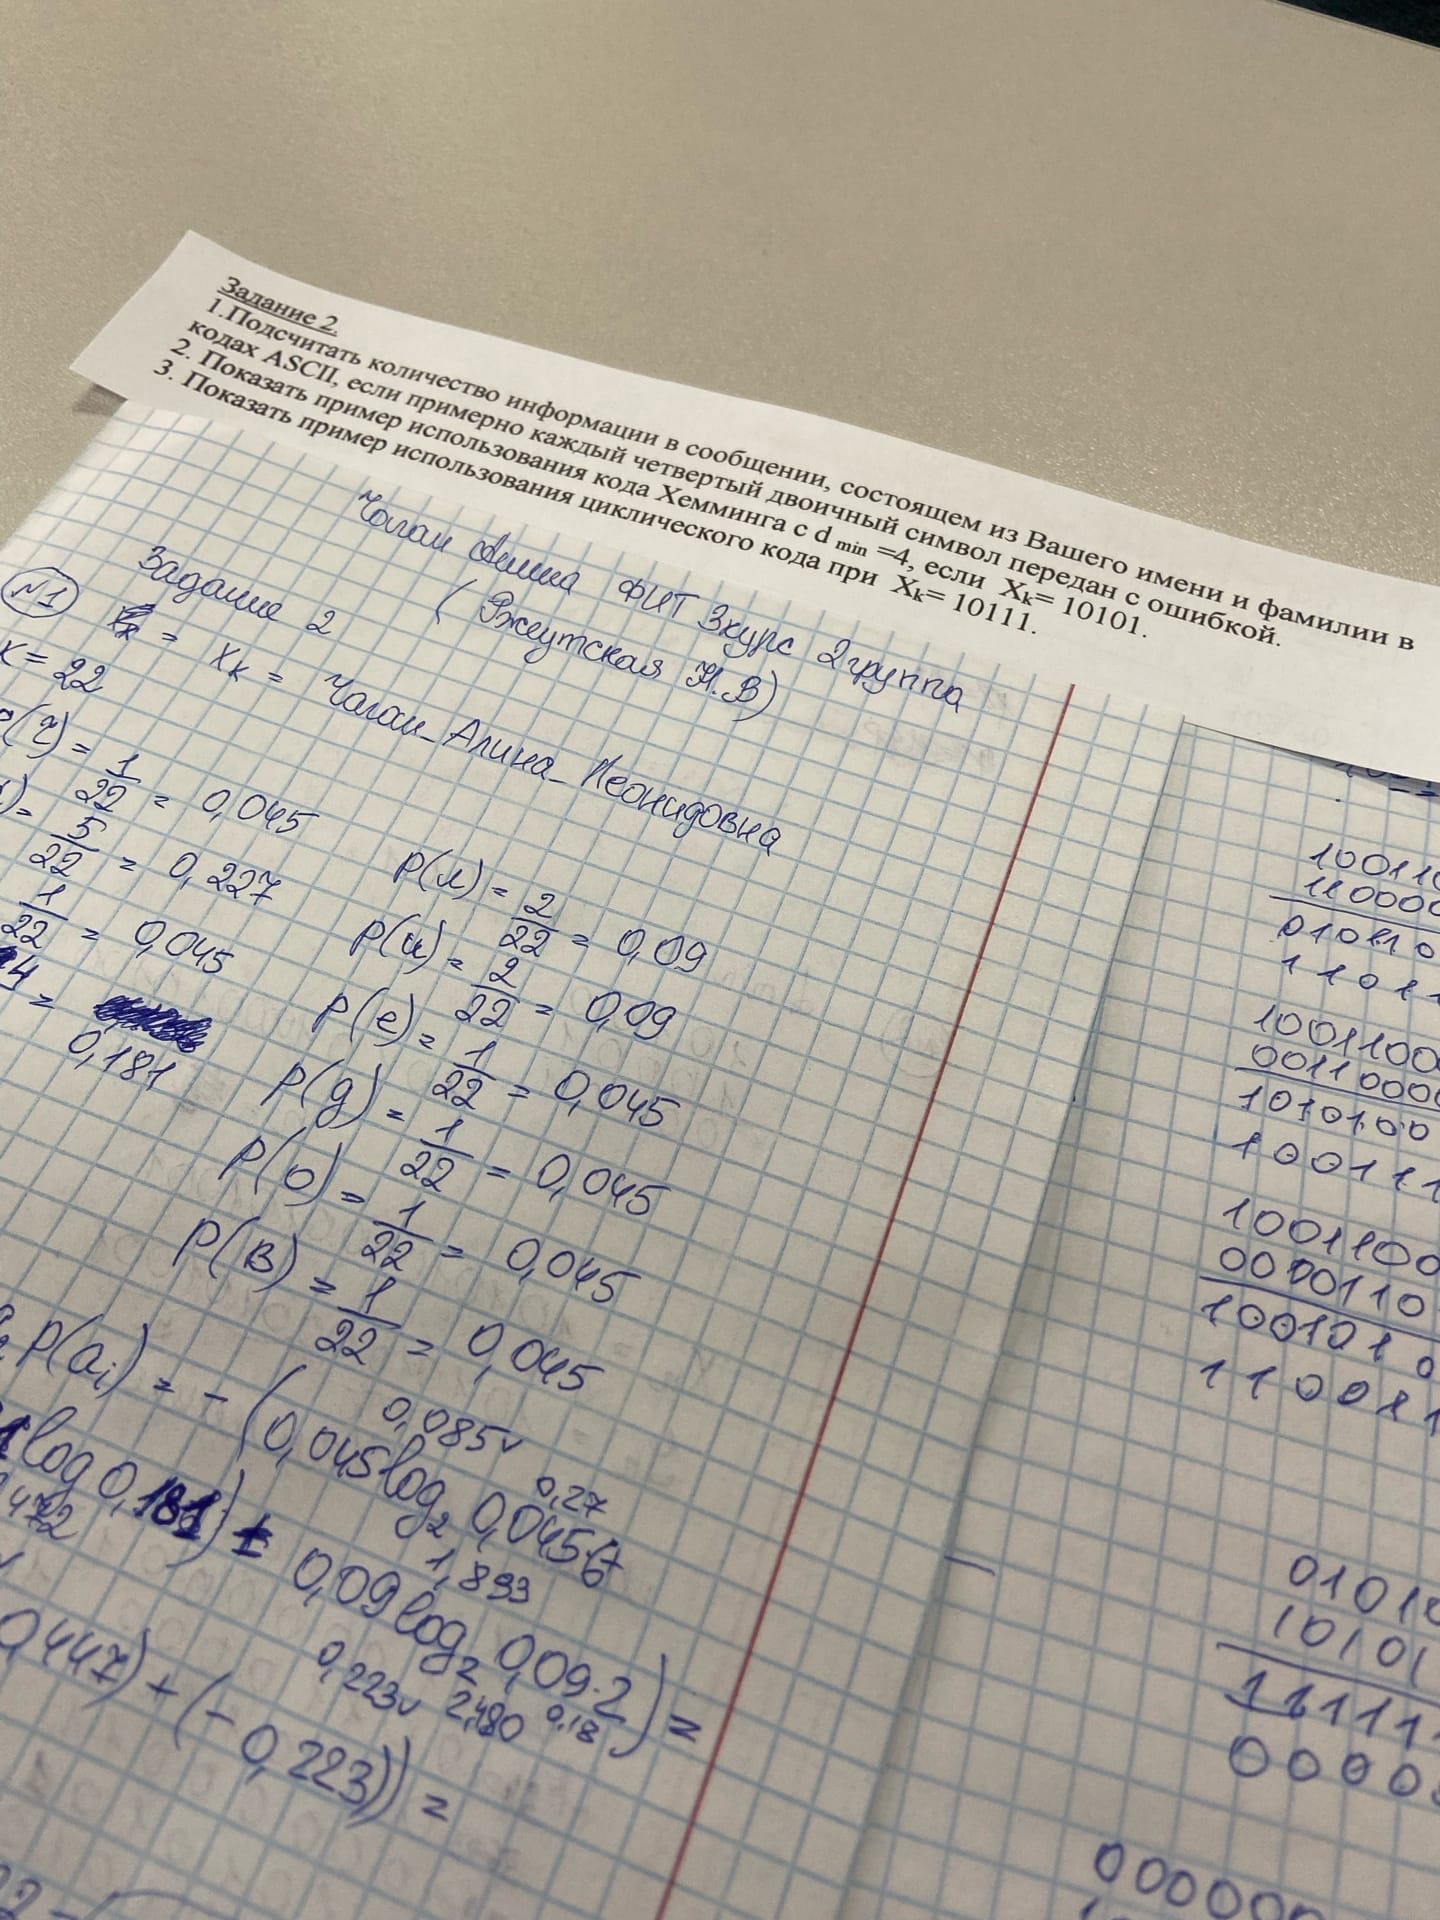 Задание 2.
1.Подсчитать количество информации в сообщении, состоящем из Вашего имени и фамилии в
кодах ASCII, если примерно каждый четвертый двоичный символ передан с ошибкой.
2. Показать пример использования кода Хемминга с d min =4, если Xк= 10101.
3. Показать пример использования циклического кода при Xк= 10111.
Чаган Алина ФИТ 3курс 2группа
(Ржеутская Н.В)
Задание 2
№1
= Xк = Чаган_Алина_Леонидовна
к=22
(ч) = 1/22 = 0,045
) = 5/22 = 0,227
1/22 = 0,045
= 0,181
P(л) = 2/22 = 0,09
P(и) = 2/22 = 0,09
P(е) = 1/22 = 0,045
P(д) = 1/22 = 0,045
P(о) = 1/22 = 0,045
P(в) = 1/22 = 0,045
P(ai) = - (0,045log2 0,045·6+
0,085
0,27
log 0,181) + 0,09log2 0,09·2) =
472
1,893
0,223 2,480 0,18
0,447) + (- 0,223)) =
10011
110000
01010
11011
1001100
0011000
1010100
100111
1001100
0000110
1001010
110011
0101
10101
11111
0000
00000